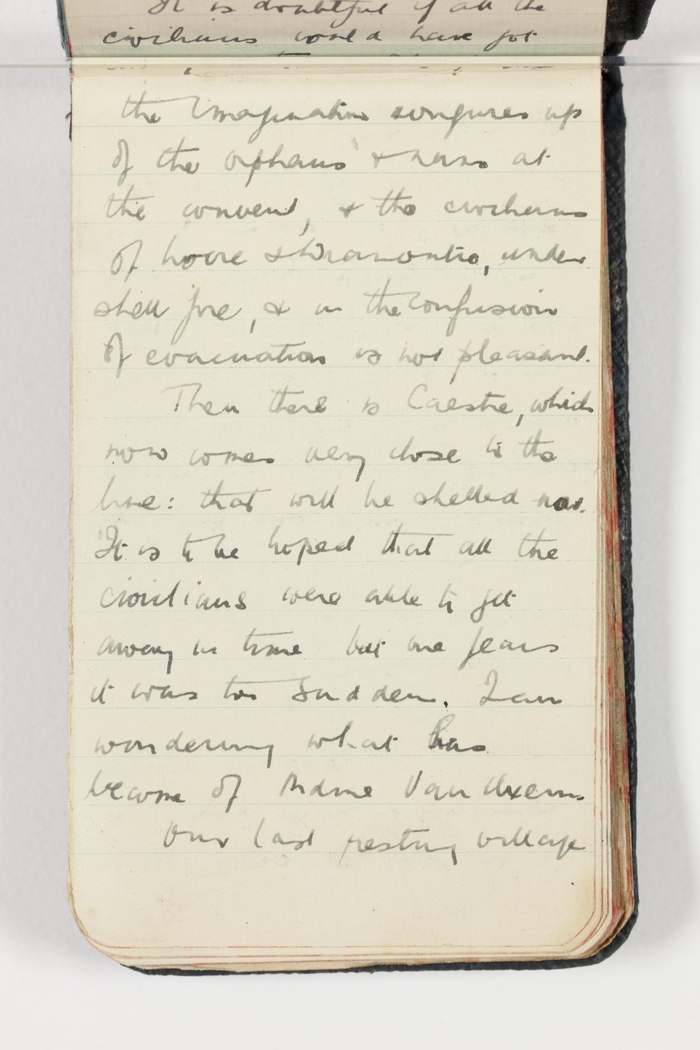 It is doubtful if all the
civilians would have got
the Imagination conjures up
of the orphans & nuns at
the convent, & the civilians
of Locre & Dramoutre, under
shell fire, & in the confusion
of evacuation is not pleasant.
Then there is Caestre, which
now comes very close to the
line: that will be shelled now.
It is to be hoped that all the
civilians were able to get
away in time but one fears
it was too sudden. I am
wondering what has
become of Mdme Van
Our last resting village